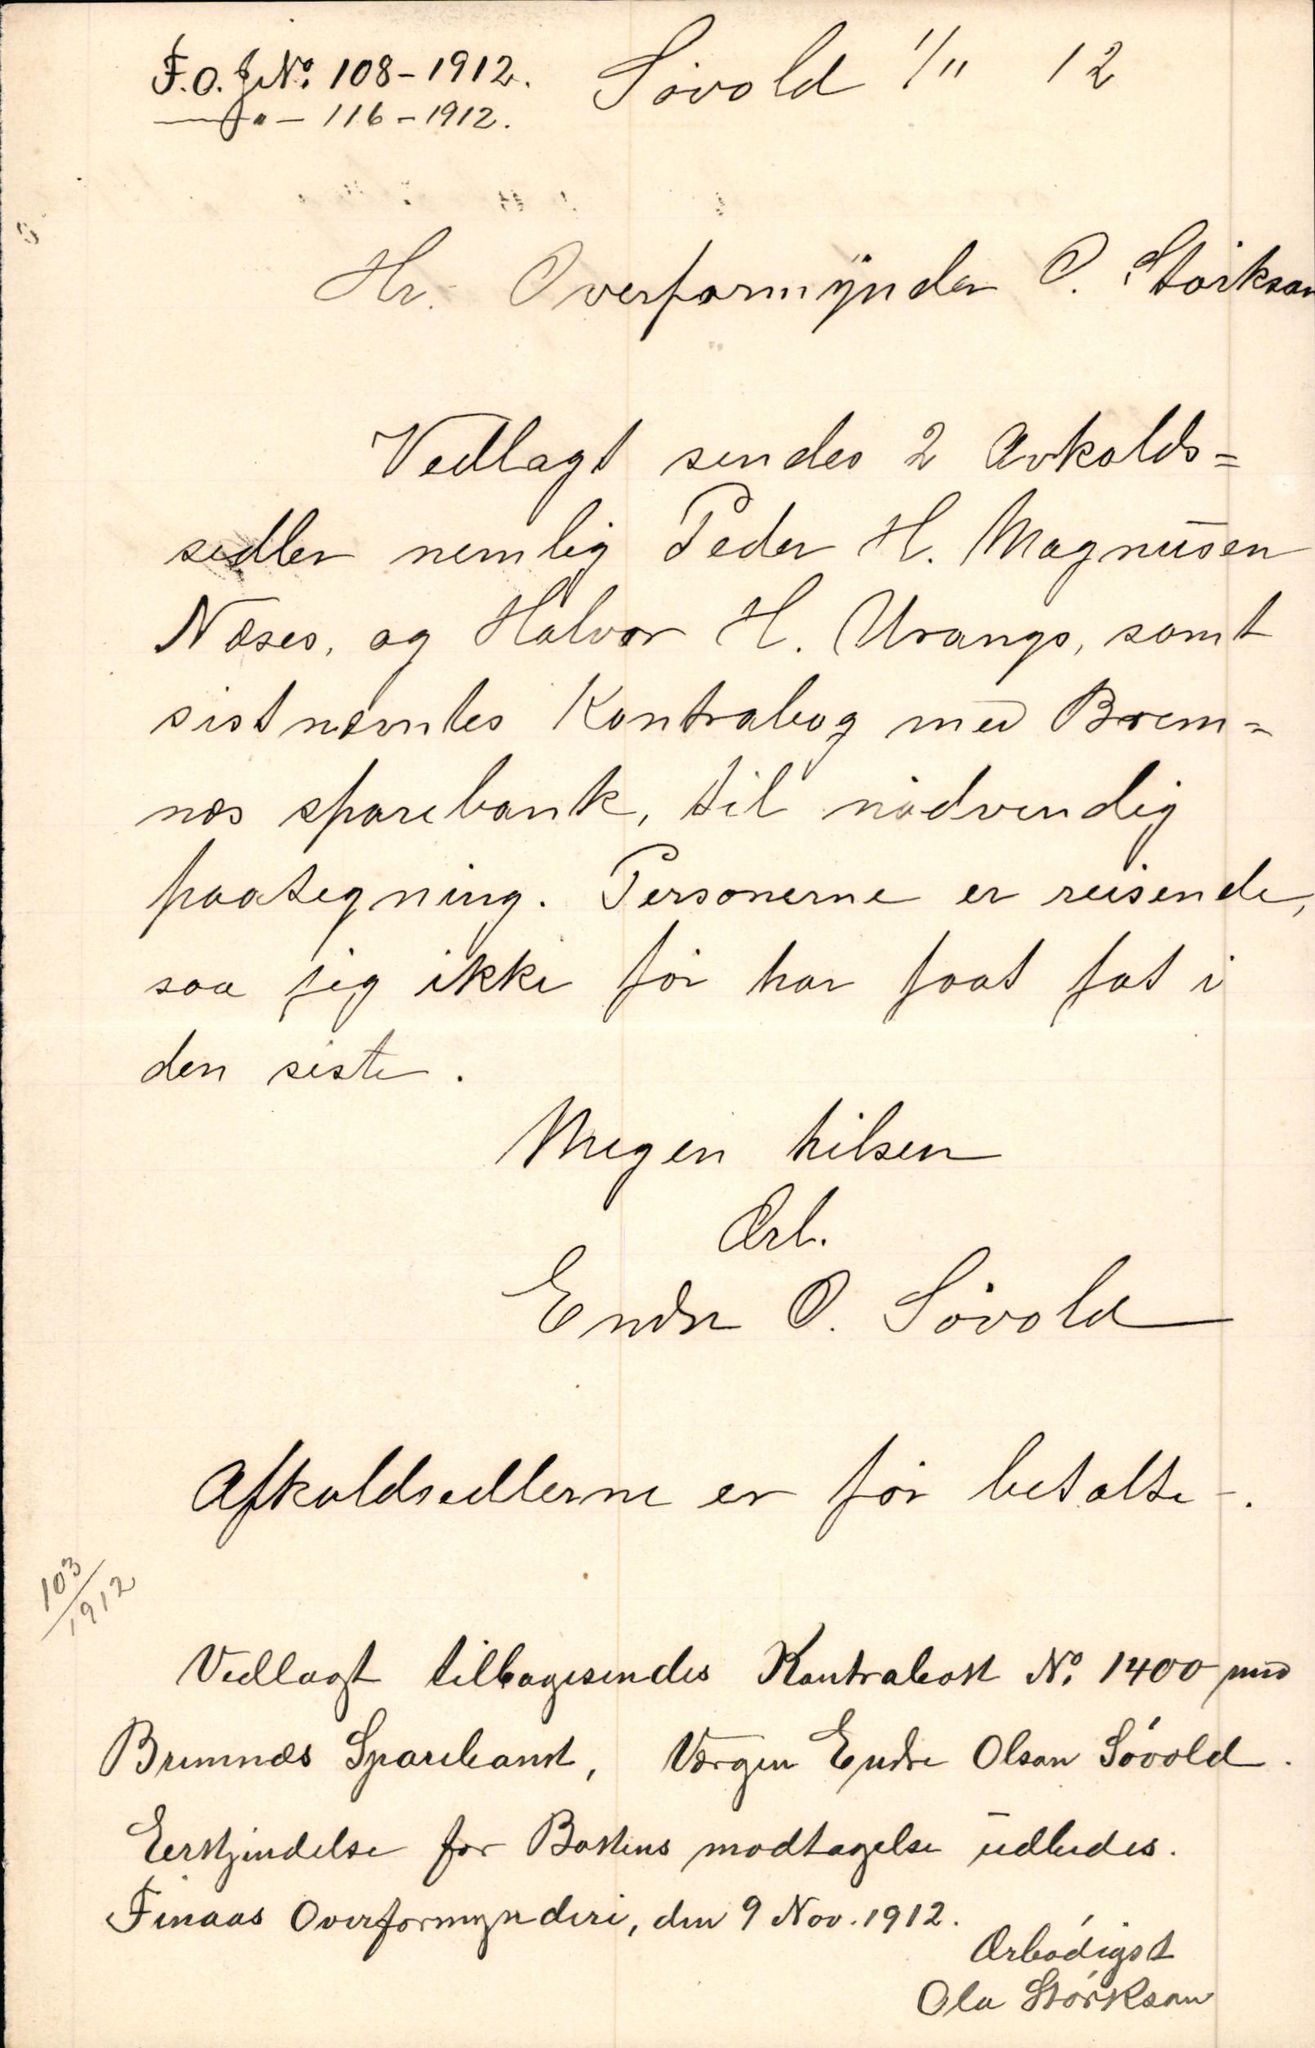 F.O.J.No. 108-1912. Sövold 1/11 12
—„— 116-1912.
Hr. Overformynder O. Störkson
Vedlagt sendes 2 Avkalds=
sedler nemlig Peder H. Magnusen
Næses, og Halvor H. Urangs, samt
sistnævntes Kontrabog med Brem=
næs sparebank, til nødvendig
paategning. Personerne er reisende,
saa jeg ikke før har faat fat i
den siste.
Megen hilsen
Ærb.
Endre O. Sövold
Afkaldsedlerne er før betalte -.
103/1912
Vedlagt tilbagesendes Kontrabok No. 1400 med
Bremnæs Sparebank, Værgen Endre Olson Sövold.
Erkjendelse for Bokens modtagelse udbedes.
Finaas Overformynderi, den 9 Nov. 1912.
Ærbødigst
Ola Störkson